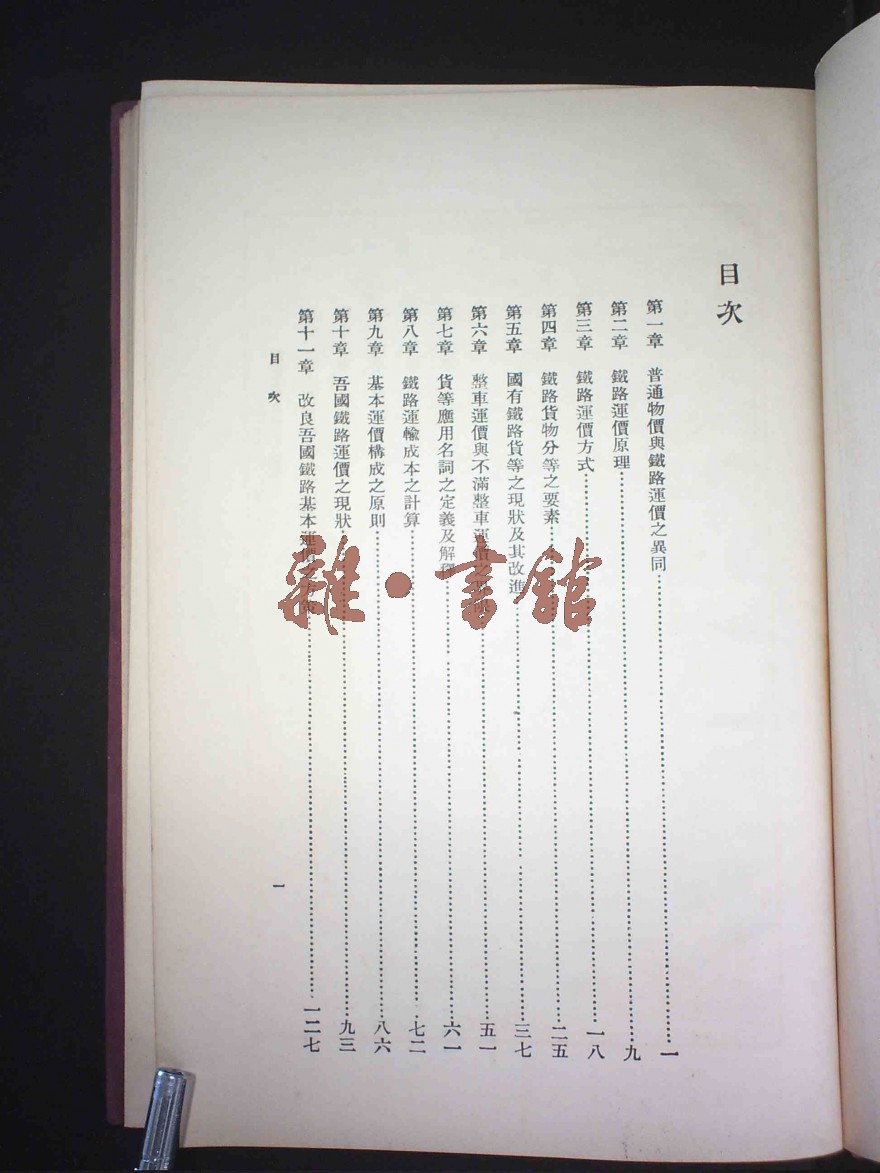 目次
第一章 普通物價與鐵路運價之異同 一
第二章 鐵路運價原理 九
第三章 鐵路運價方式 一八
第四章 鐵路貨物分等之要素 二五
第五章 國有鐵路貨等之現狀及其改進 三七
第六章 整車運價與不滿整車運價之 五一
第七章 貨等應用名詞之定義及解釋 六一
第八章 鐵路運輸成本之計算 七二
第九章 基本運價構成之原則 八六
第十章 吾國鐵路運價之現狀 九三
第十一章 改良吾國鐵路基本運價之 一二七
目次
一
雜·書館